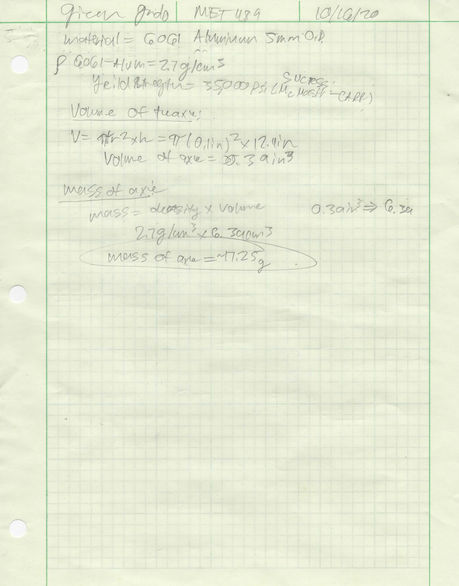 MET 489 10/16/20
material = 6061 Aluminum 5mm O.D.
ρ 6061-Alum = 2.7g/cm3
Yeild = 35000 psi (McMaster-CARR)
Volume of
V = πr^2xh = π(0.1in)^2 x 12.4in
Volume of axie = 0.39in^3
mass of axie
mass = density x volume 0.39in^3 ⇒ 6.39
2.7g/cm^3 x 6.39cm^3
mass of axie = ~17.25g